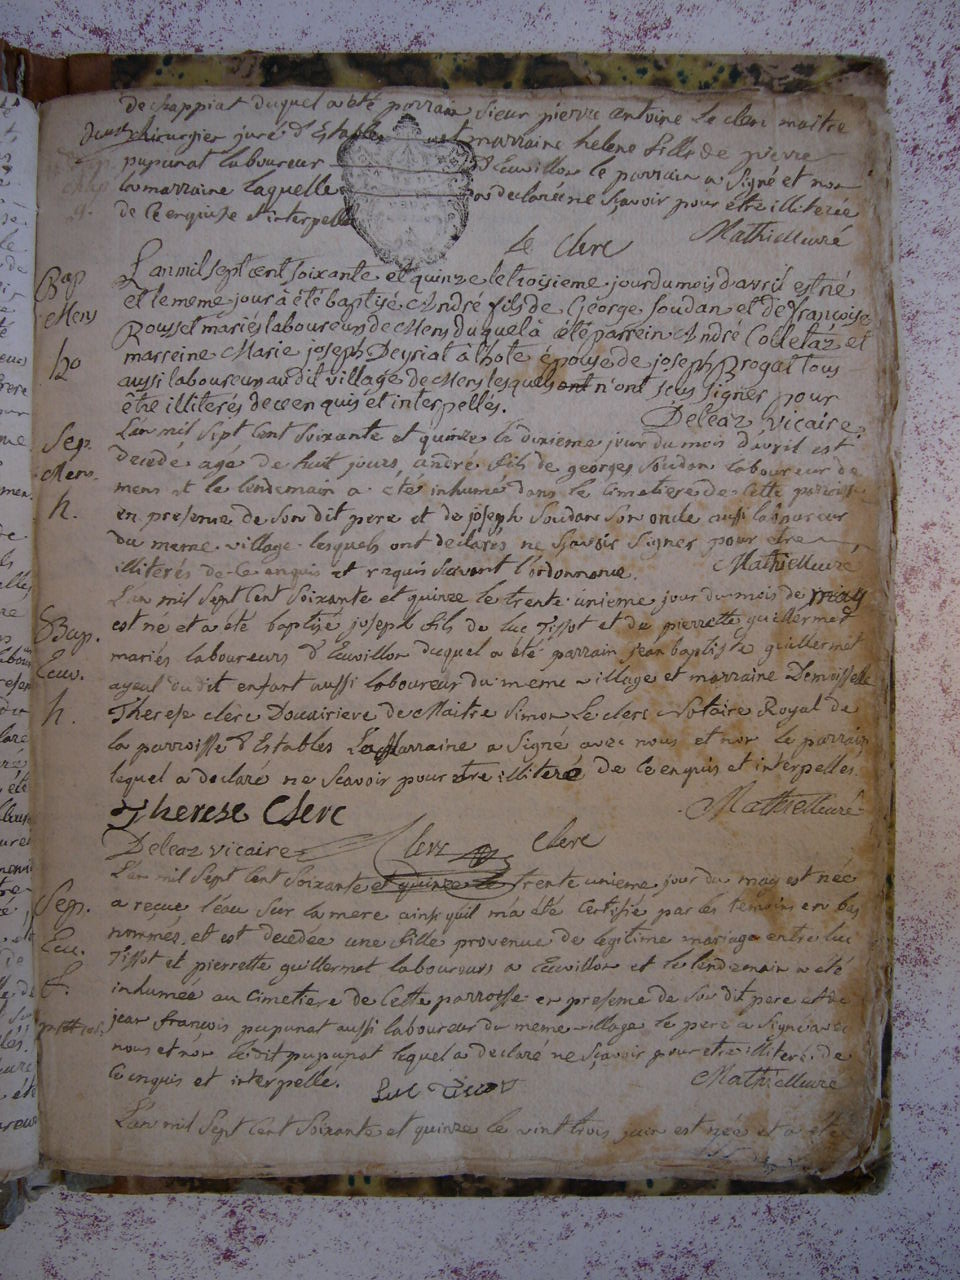 de chappiat duquel a été parrain sieur pierre antoine le clerc maitre
chirurgien juré d'Estables et marraine helene fille de pierre
pupunat laboureur d'Ecuvillon le parrain a signé et non
la marraine laquelle a declaré ne sçavoir pour être illiterée
de ce enquise et interpellé
le Clerc Mathieu curé
Bap
Mens
ho
L'an mil sept cent soixante et quinze le troisieme jour du mois d'avril est né
et le meme jour à été baptisé André fils de George Soudan et de Françoise
Rousset mariés laboureurs de Mens duquel à été parrein André Colletaz et
marreine Marie joseph Deyriat à l'hote épouse de joseph Brogat tous
aussi laboureurs au dit village de Mens lesquels ont n'ont sçus signer pour
être illiterés de ce enquis et interpellés.
Deleaz vicaire
Sep.
Mens.
h.
L'an mil sept cent soixante et quinze le dixieme jour du mois d'avril est
decede agé de huit jours, andré fils de georges Soudan laboureur de
mens et le lendemain a été inhumé dans le cimetiere de cette parroisse
en presence de son dit pere et de joseph Soudan son oncle aussi laboureur
du meme village lesquels ont declarés ne sçavoir signer pour etre
illiterés de ce enquis et requis suivant l'ordonnance. Mathieu curé
Bap.
Ecuv.
h.
L'an mil sept cent soixante et quinze le trente unieme jour du mois de may
est né et a été baptisé joseph fils de luc Tissot et de pierrette guillermet
mariés laboureurs d'Ecuvillon duquel a été parrain jean baptiste guillermet
ayeul du dit enfant aussi laboureur du meme village et marraine Demoisselle
Therese clerc Douairiere de Maitre Simon Le clerc Notaire Royal de
la parroisse d'Estables La Marraine a signé avec nous et non le parrain
lequel a declaré ne scavoir pour etre illiteré de ce enquis et interpellés.
Therese Clerc Mathieu curé
Deleaz vicaire Clerc Clerc
Sep.
Ecu.
f.
L'an mil sept cent soixante et quinze le trente unieme jour du may est née
a reçue l'eau sur la mere ainsy qu'il m'a été certifié par les temoins en bas
nommés, et est decedée une fille provenue de legitime mariage entre luc
Tissot et pierrette guillermet laboureurs a Ecuvillon et le lendemain a été
inhumée au cimetiere de cette parroisse en presence de son dit pere et de
jean françois pupunat aussi laboureur du meme village le pere a signé avec
nous et non le dit pupunat lequel a declaré ne sçavoir pour etre illiteré de
ce enquis et interpelle. Luc Tissot Mathieu curé
L'an mil sept cent soixante et quinze le vint trois juin est née et a été